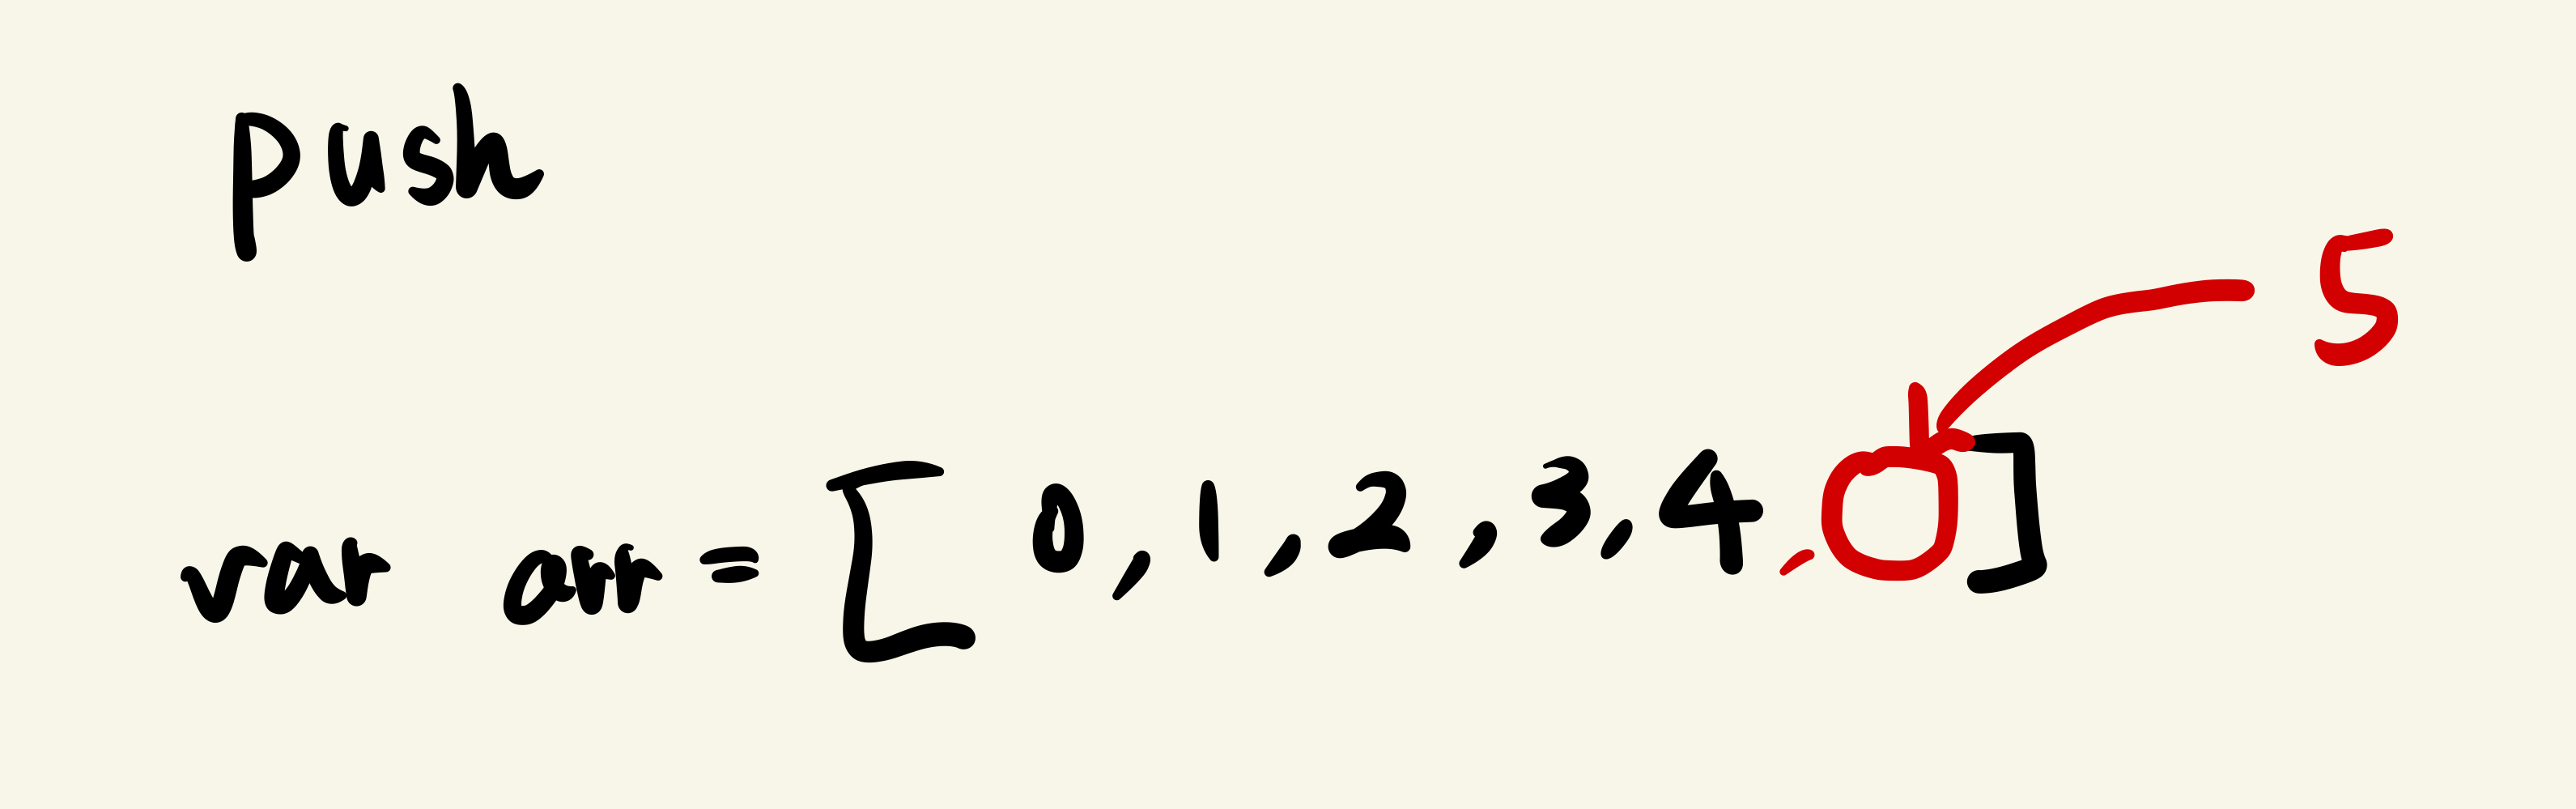 push
5
var arr = [ 0, 1, 2, 3, 4, ]